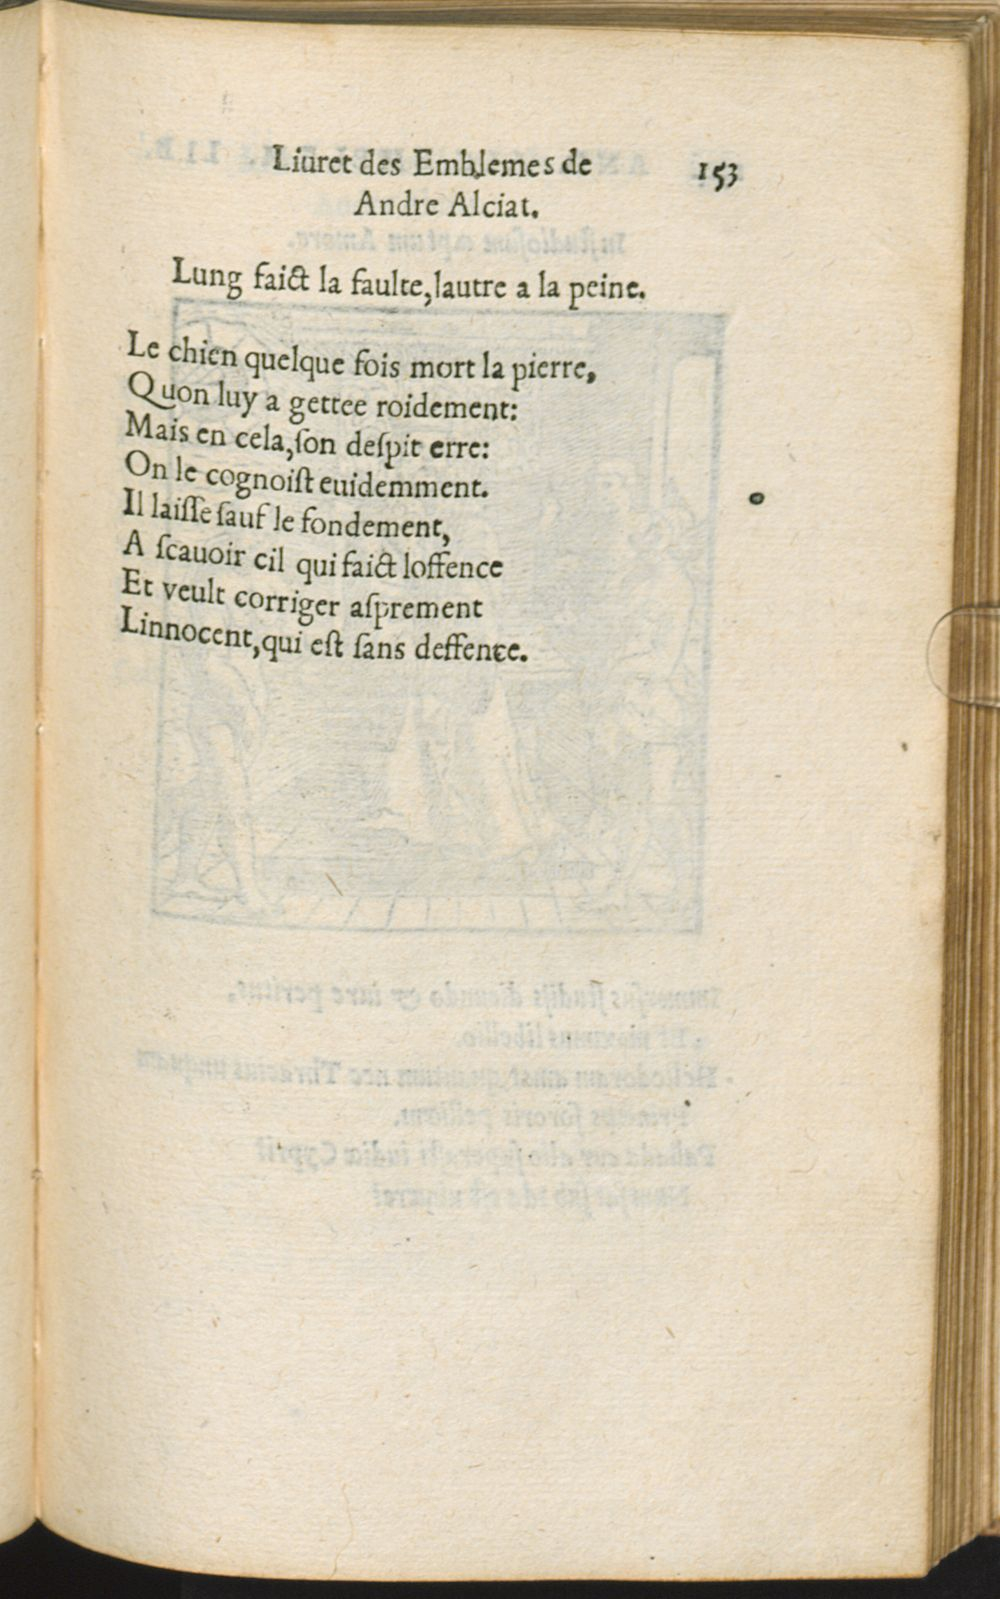 Liuret des Emblemes de 153
Andre Alciat.
Lung faict la faulte, lautre a la peine.
Le chien quelque fois mort la pierre,
Quon luy a gettee roidement:
Mais en cela, ſon deſpit erre:
On le cognoiſt euidemment.
Il laiſſe ſauf le fondement,
A ſcauoir cil qui faict loffence
Et veult corriger aſprement
Linnocent, qui eſt ſans deffence.